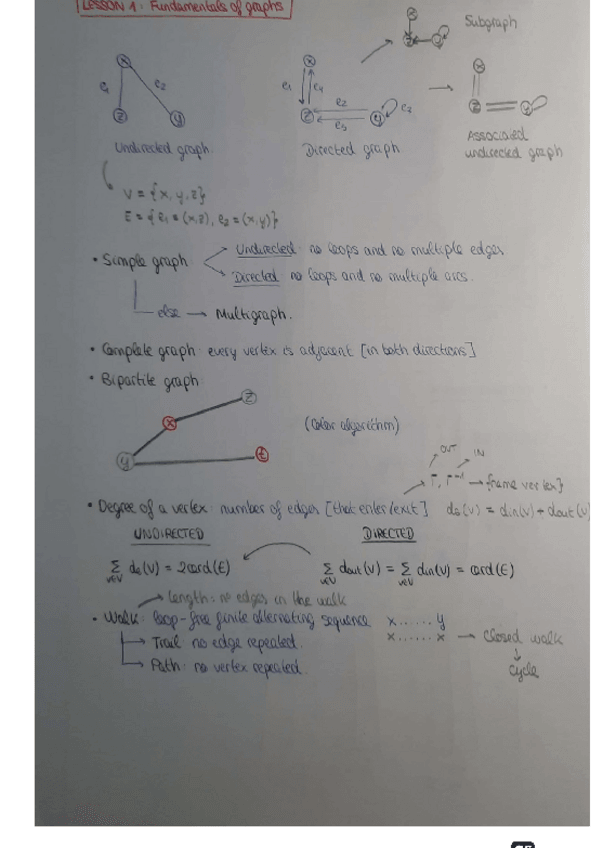 LESSON 1: Fundamentals of graphs
Subgraph
x
e1 e2
z y
Undirected graph.
x
e1 e4
e2
z y
e3
Directed graph
x
z y
Associated
undirected graph
V = {x, y, z}
E = {e1 = (x,z), e2 = (x,y)}
• Simple graph
Undirected: no loops and no multiple edges
Directed: no loops and no multiple arcs.
else → Multigraph.
• Complete graph: every vertex is adjacent [in both directions]
• Bipartite graph
z
x
(Color algorithm)
y t
OUT IN
Γ, Γ⁻¹ →
• Degree of a vertex: number of edges [that enter/exit] dG(v) = din(v) + dout(v)
UNDIRECTED DIRECTED
Σ v∈V dG(v) = 2card(E) Σ v∈V dout(v) = Σ v∈V din(v) = card(E)
Length: nº edges in the walk
• Walk: loop-free finite alternating sequence x......y
x......x → Closed walk
Trail: no edge repeated.
↓
cycle
Path: no vertex repeated.